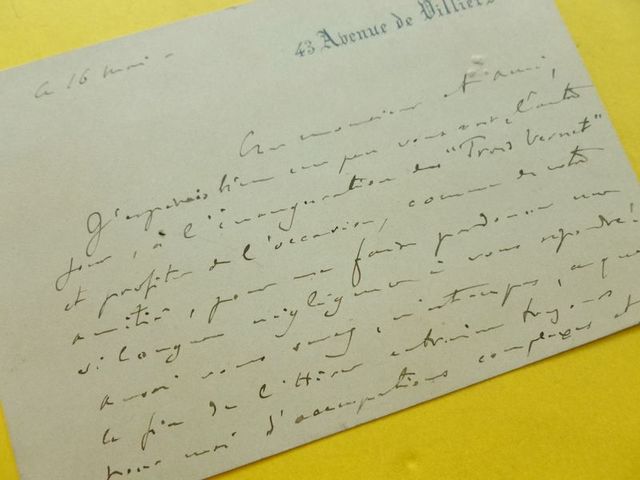 43 Avenue de Villiers
Ce 16 mai -
Cher monsieur et ami,
J'espérais bien un peu vous voir l'autre
jour, à l'inauguration des "Trois Vernet"
et profiter de l'occasion, comme de votre
amitié, pour me faire pardonner une
si longue négligence à vous répondre.
vous
la fin de l'hiver entraîne toujours
pour moi d'occupations complexes et